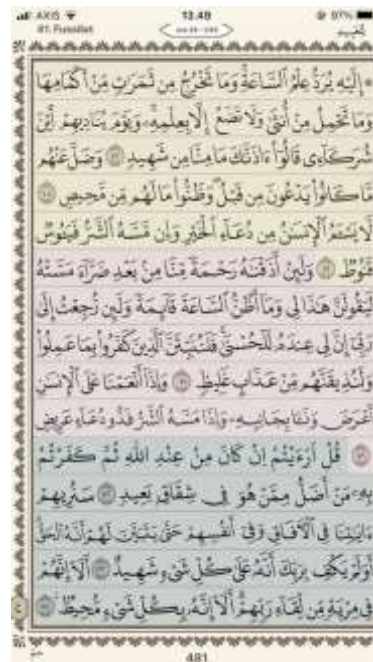 AXIS 13.49 97%
41. Fussilat
۞ إِلَيْهِ يُرَدُّ عِلْمُ ٱلسَّاعَةِ وَمَا تَخْرُجُ مِن ثَمَرَٰتٍ مِّنْ أَكْمَامِهَا
وَمَا تَحْمِلُ مِنْ أُنثَىٰ وَلَا تَضَعُ إِلَّا بِعِلْمِهِۦ وَيَوْمَ يُنَادِيهِمْ أَيْنَ
شُرَكَآءِى قَالُوٓا۟ ءَاذَنَّٰكَ مَا مِنَّا مِن شَهِيدٍ ٤٧ وَضَلَّ عَنْهُم
مَّا كَانُوا۟ يَدْعُونَ مِن قَبْلُ وَظَنُّوا۟ مَا لَهُم مِّن مَّحِيصٍ ٤٨
لَّا يَسْـَٔمُ ٱلْإِنسَٰنُ مِن دُعَآءِ ٱلْخَيْرِ وَإِن مَّسَّهُ ٱلشَّرُّ فَيَـُٔوسٌ
قَنُوطٌ ٤٩ وَلَئِنْ أَذَقْنَٰهُ رَحْمَةً مِّنَّا مِنۢ بَعْدِ ضَرَّآءَ مَسَّتْهُ
لَيَقُولَنَّ هَٰذَا لِى وَمَآ أَظُنُّ ٱلسَّاعَةَ قَآئِمَةً وَلَئِن رُّجِعْتُ إِلَىٰ
رَبِّىٓ إِنَّ لِى عِندَهُۥ لَلْحُسْنَىٰ فَلَنُنَبِّئَنَّ ٱلَّذِينَ كَفَرُوا۟ بِمَا عَمِلُوا۟
وَلَنُذِيقَنَّهُم مِّنْ عَذَابٍ غَلِيظٍ ٥٠ وَإِذَآ أَنْعَمْنَا عَلَى ٱلْإِنسَٰنِ
أَعْرَضَ وَنَـَٔا بِجَانِبِهِۦ وَإِذَا مَسَّهُ ٱلشَّرُّ فَذُو دُعَآءٍ عَرِيضٍ
٥١ قُلْ أَرَءَيْتُمْ إِن كَانَ مِنْ عِندِ ٱللَّهِ ثُمَّ كَفَرْتُم
بِهِۦ مَنْ أَضَلُّ مِمَّنْ هُوَ فِى شِقَاقٍۭ بَعِيدٍ ٥٢ سَنُرِيهِمْ
ءَايَٰتِنَا فِى ٱلْءَافَاقِ وَفِىٓ أَنفُسِهِمْ حَتَّىٰ يَتَبَيَّنَ لَهُمْ أَنَّهُ ٱلْحَقُّ
أَوَلَمْ يَكْفِ بِرَبِّكَ أَنَّهُۥ عَلَىٰ كُلِّ شَىْءٍ شَهِيدٌ ٥٣ أَلَآ إِنَّهُمْ
فِى مِرْيَةٍ مِّن لِّقَآءِ رَبِّهِمْ أَلَآ إِنَّهُۥ بِكُلِّ شَىْءٍ مُّحِيطٌۢ ٥٤
481